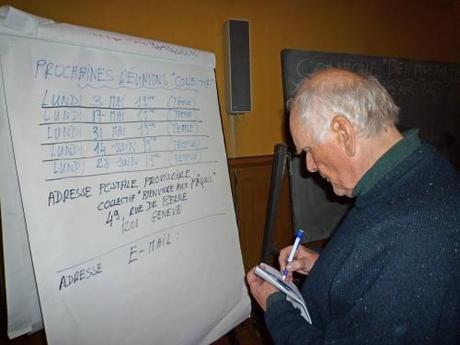 PROCHAINES RÉUNIONS "COLLECTIF"
LUNDI 3 MAI 19ʰ⁰⁰ (TEMPLE)
LUNDI 17 MAI 19ʰ⁰⁰ (TEMPLE)
LUNDI 31 MAI 19ʰ⁰⁰ (TEMPLE)
LUNDI 14 JUIN 19ʰ⁰⁰ (TEMPLE)
LUNDI 28 JUIN 19ʰ⁰⁰ (TEMPLE)
ADRESSE POSTALE PROVISOIRE :
COLLECTIF "BIENVENUE AUX PÂQUIS"
49, RUE DE BERNE
1201 GENEVE
ADRESSE E-MAIL :
COLLECTIF "BIENVENUE